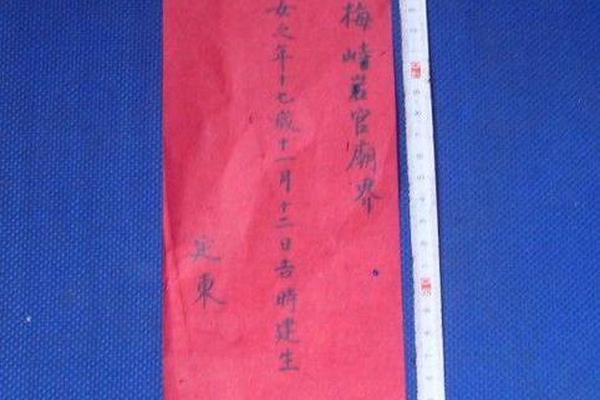 梅峙岩官廟界
女之年十七歲十一月十二日吉時建生
定東